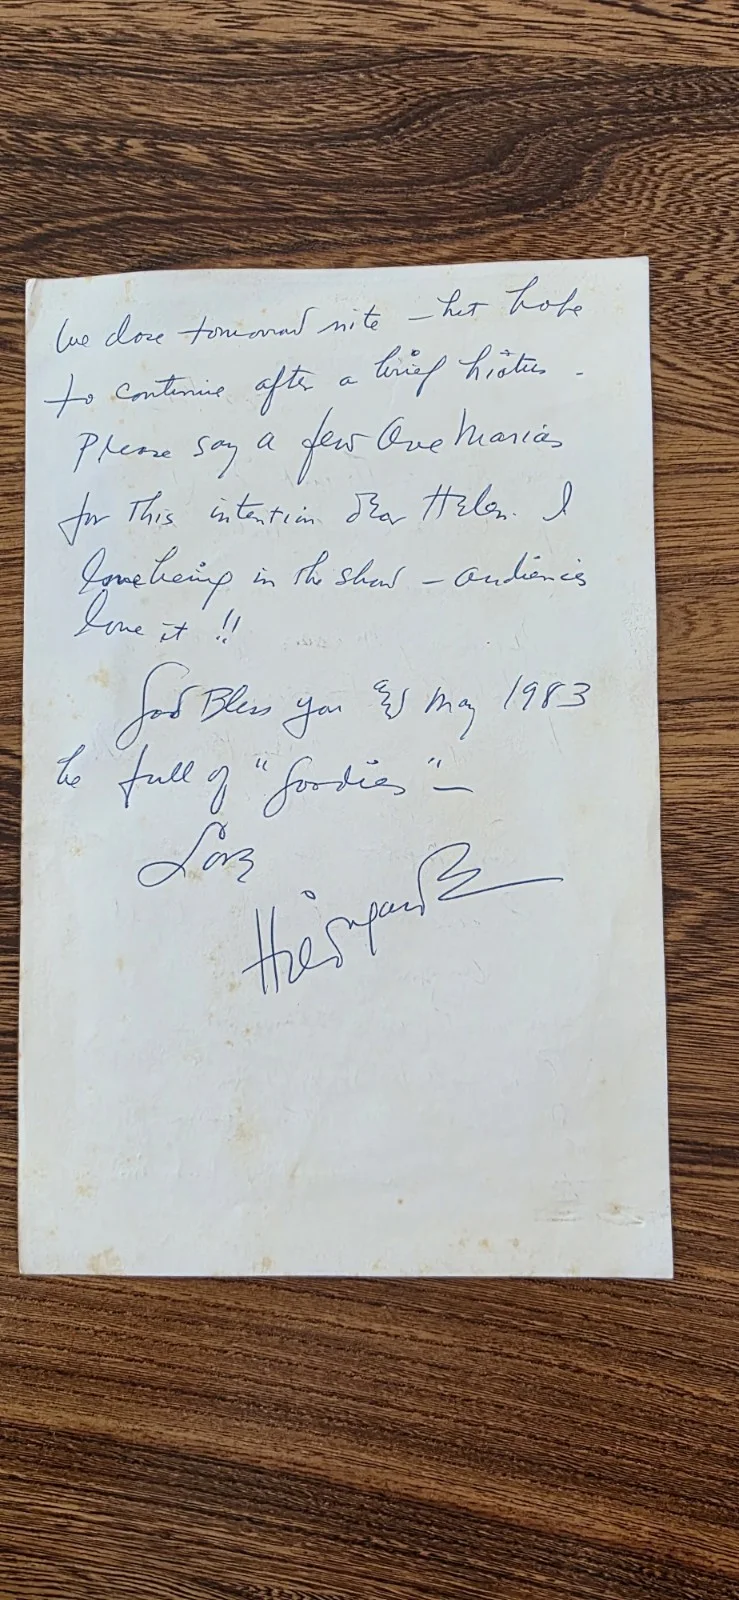 We close tomorrow nite – but hope
to continue after a brief hiatus –
Please say a few Ave Marias
for this intention dear Helen. I
love being in the show – audiences
love it !!
God Bless you & may 1983
be full of "Goodies" –
Love
Hildegarde